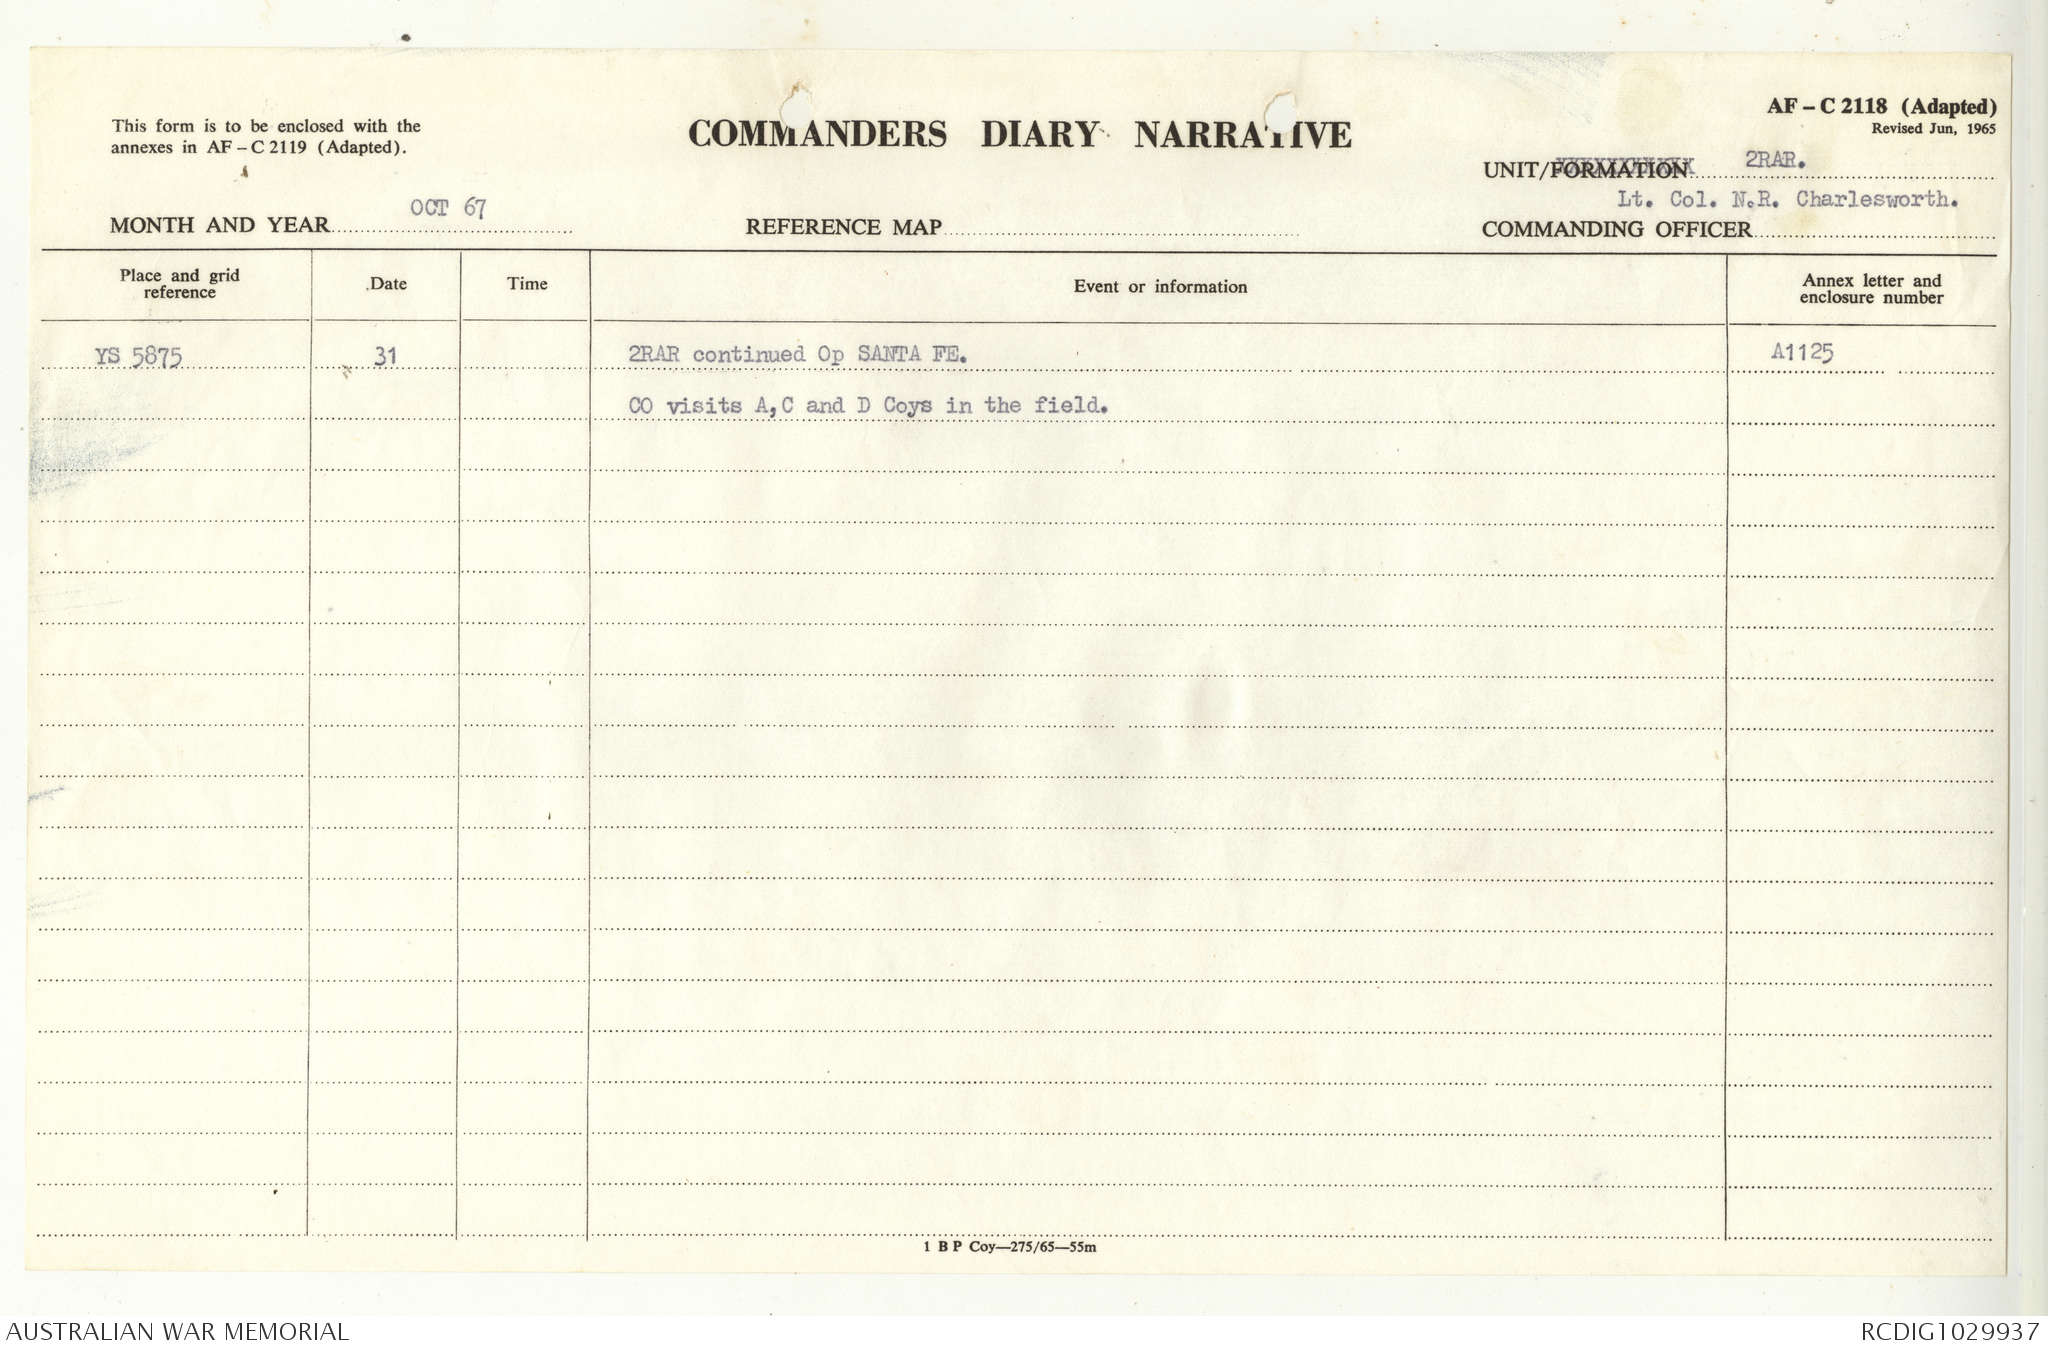 This form is to be enclosed with the
annexes in AF – C 2119 (Adapted).
COMMANDERS DIARY NARRATIVE
AF – C 2118 (Adapted)
Revised Jun, 1965
UNIT/FORMATION 2RAR.
MONTH AND YEAR OCT 67
REFERENCE MAP
Lt. Col. N.R. Charlesworth.
COMMANDING OFFICER
Place and grid
reference
Date
Time
Event or information
Annex letter and
enclosure number
YS 5875 31 2RAR continued Op SANTA FE. A1125
CO visits A,C and D Coys in the field.
1 B P Coy—275/65—55m
AUSTRALIAN WAR MEMORIAL
RCDIG1029937